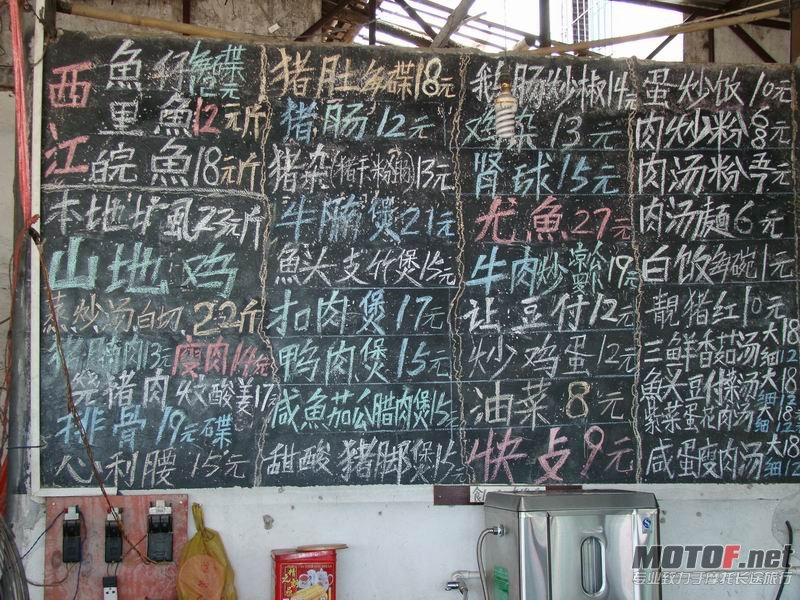 西江
魚仔每碟12元
里魚12元斤
皖魚18元斤
本地圹風23元斤
山地鸡
蒸炒汤白切22斤
猪腩肉13元 瘦肉14元
烧猪肉炆酸姜17元
排骨19元碟
心利腰15元
猪肚每碟18元
猪肠12元
猪杂(猪干粉肠)13元
牛腩煲21元
魚头支竹煲15元
扣肉煲17元
鸭肉煲15元
咸魚茄瓜腊肉煲15元
甜酸猪脚煲15元
鹅肠炒椒14元
鸡杂13元
肾球15元
尤魚27元
牛肉炒凉瓜19元
让豆付12元
炒鸡蛋12元
油菜8元
快攴9元
蛋炒饭10元
肉炒粉6元8元
肉汤粉5元
肉汤麵6元
白饭每碗1元
靓猪红10元
三鲜香菇汤大18细12
魚头豆付菜汤大18细12
紫菜蛋花肉汤大18细12
咸蛋瘦肉汤大18细12
MOTOF.net
专业致力于摩托长途旅行